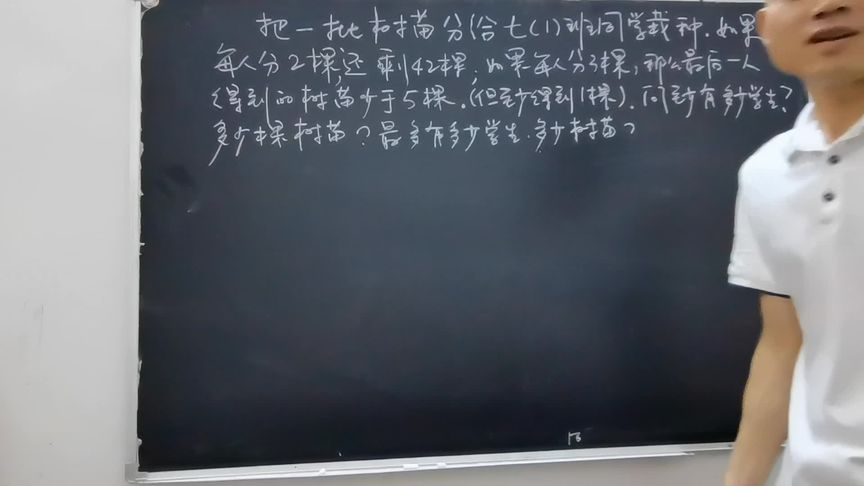 把一批树苗分给七(1)班同学栽种.如果
每人分2棵,还剩42棵,如果每人分3棵,那么最后一人
得到的树苗少于5棵.(但至少得到1棵).问至少有多少学生?
多少棵树苗?最多有多少学生.多少树苗?